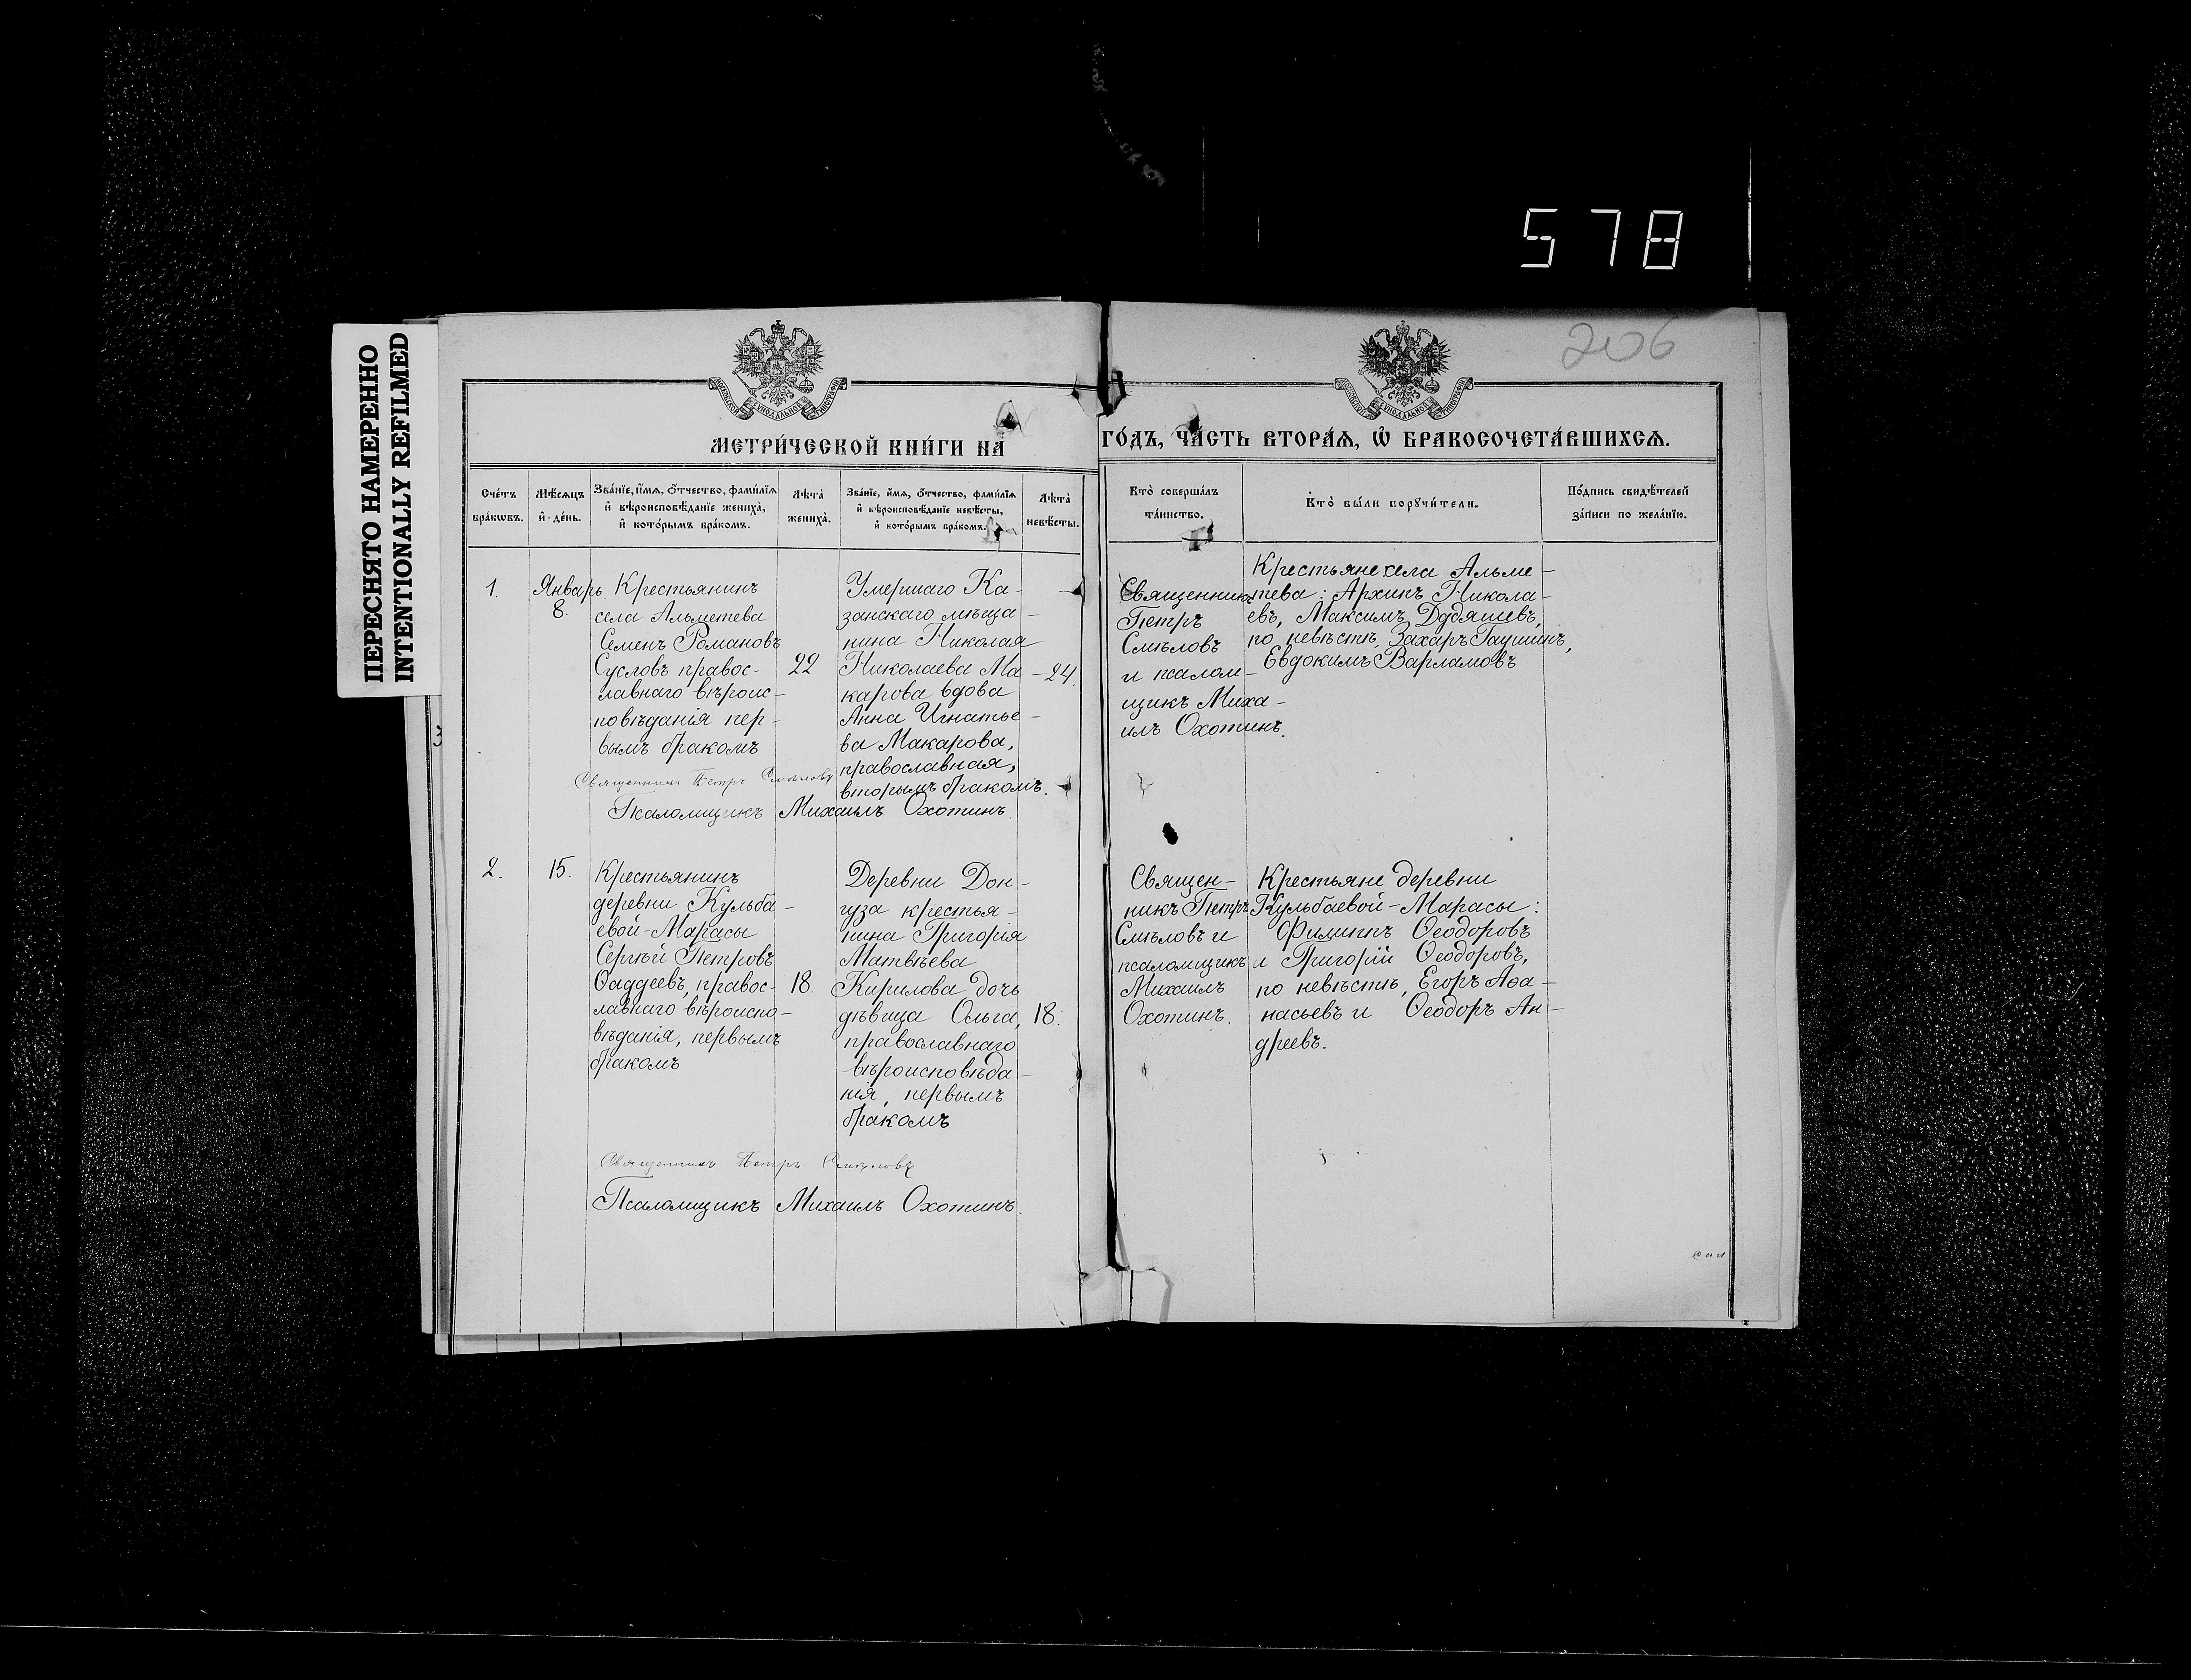 578
ПЕРЕСНЯТО НАМЕРЕННО
INTENTIONALLY REFILMED
206
МЕТРИ́ЧЕСКОЙ КНИ́ГИ НА
ГО́ДЪ, ЧА́СТЬ ВТОРА́Ѧ, Ѡ҆ БРАКОСОЧЕТА́ВШИХСѦ.
Сче́тъ
бра́кѡвъ.
Мѣ́сѧцъ
и҆ де́нь.
Зва́нїе, и҆́мѧ, ѻ҆́тчество, фами́лїѧ
и҆ вѣроисповѣ́данїе жениха̀,
и҆ кото́рымъ бра́комъ.
Лѣта̀
жениха̀.
Зва́нїе, и҆́мѧ, ѻ҆́тчество, фами́лїѧ
и҆ вѣроисповѣ́данїе невѣ́сты,
и҆ кото́рымъ бра́комъ.
Лѣта̀
невѣ́сты.
Кто̀ соверша́лъ
та́инство.
Кто̀ бы́ли порꙋчи́тели.
По́дпись свидѣ́телей
за́писи по жела́нїю.
1.
Январь
8.
Крестьянинъ
села Альметева
Семенъ Романовъ
Сусловъ правос-
лавнаго вѣроис-
повѣданія пер-
вымъ бракомъ
22
Умершаго Ка-
занскаго мѣща-
нина Николая
Николаева Ма-
карова вдова
Анна Игнатье-
ва Макарова,
православная,
вторымъ бракомъ.
24.
Священникъ
Петръ
Смѣловъ
и псалом-
щикъ Миха-
илъ Охотинъ.
Крестьяне села Альме-
тева: Архипъ Никола-
евъ, Максимъ Дудашевъ,
по невѣстѣ, Захаръ Гаушинъ,
Евдокимъ Варламовъ
Священникъ Петръ Смѣловъ
Псаломщикъ Михаилъ Охотинъ.
2.
15.
Крестьянинъ
деревни Кульба-
евой-Марасы
Сергѣй Петровъ
Ѳаддеевъ, правос-
лавнаго вѣроиспо-
вѣданія, первымъ
бракомъ
18.
Деревни Дон-
гуза крестья-
нина Григорія
Матвѣева
Кирилова дочь
дѣвица Ольга,
православнаго
вѣроисповѣда-
нія, первымъ
бракомъ
18.
Священ-
никъ Петръ
Смѣловъ и
псаломщикъ
Михаилъ
Охотинъ.
Крестьяне деревни
Кульбаевой-Марасы:
Филиппъ Ѳеодоровъ
и Григорій Ѳеодоровъ,
по невѣстѣ, Егоръ Аѳа-
насьевъ и Ѳеодоръ Ан-
дреевъ.
Священникъ Петръ Смѣловъ
Псаломщикъ Михаилъ Охотинъ.